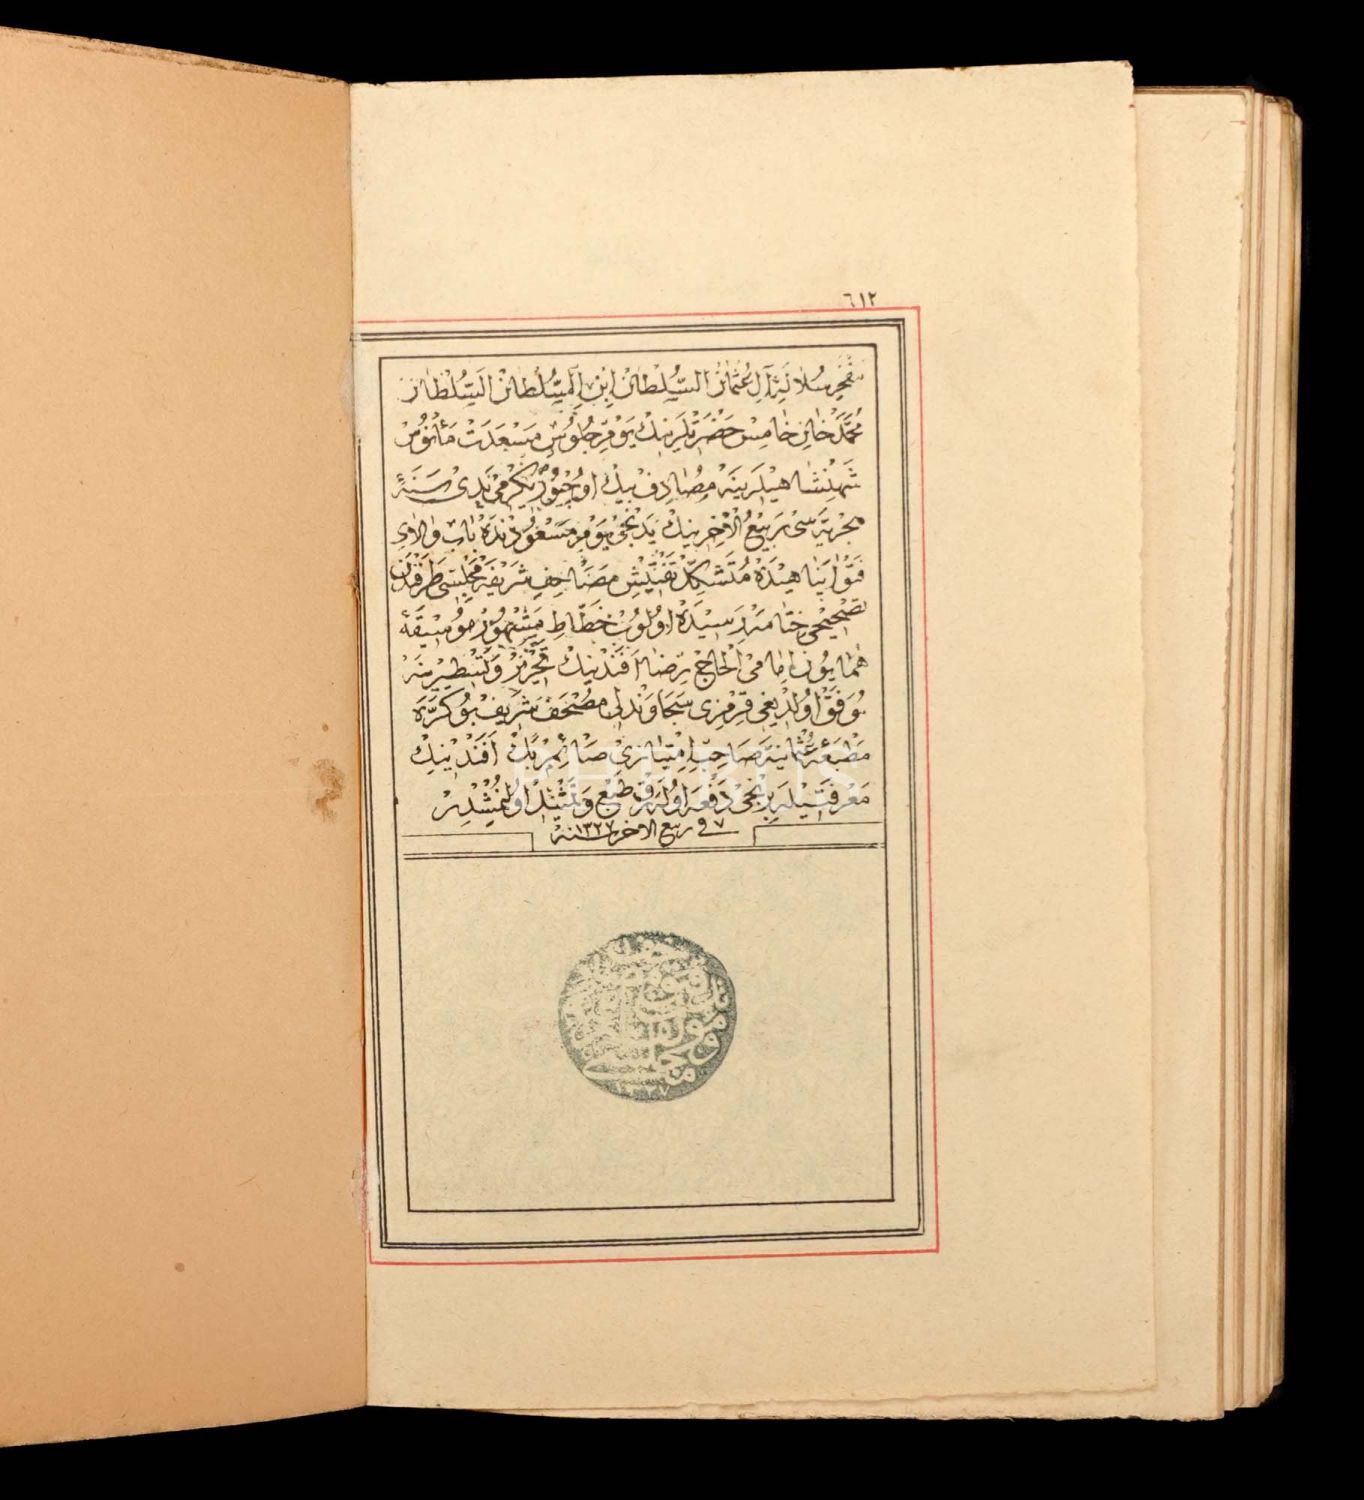 ٦١٢
مفخر سلالۀ آل عثمان السلطان ابن السلطان السلطان
محمد خان خامس حضرتلرينك يوم جلوس مسعدت مأنوس
شهنشاهيلرينه مصادف بيك اوچيوز يكرمى يدى سنۀ
هجريه سى ربيع الآخرينك يدنجى يوم مسعودنده باب والاى
فتوا پناهيده متشكل تفتيش مصاحف شريفه مجلسى طرفندن
تصحيحى ختامه رسيده اولوب خطاط مشهور موسيقۀ
همايون امامى الحاج رضا افندينك تحرير و تسطيرينه
موفق اولديغى قرمزى سجاوندلى مصحف شريف بو كره
مطبعۀ عثمانيه صاحب امتيازى صائم بك افندينك
معرفتيله برنجى دفعه اوله رق طبع و تمثيل اولنمشدر
٧ فى ربيع الاخر سنه ١٣٢٧
PHEBUS
١٣٢٧